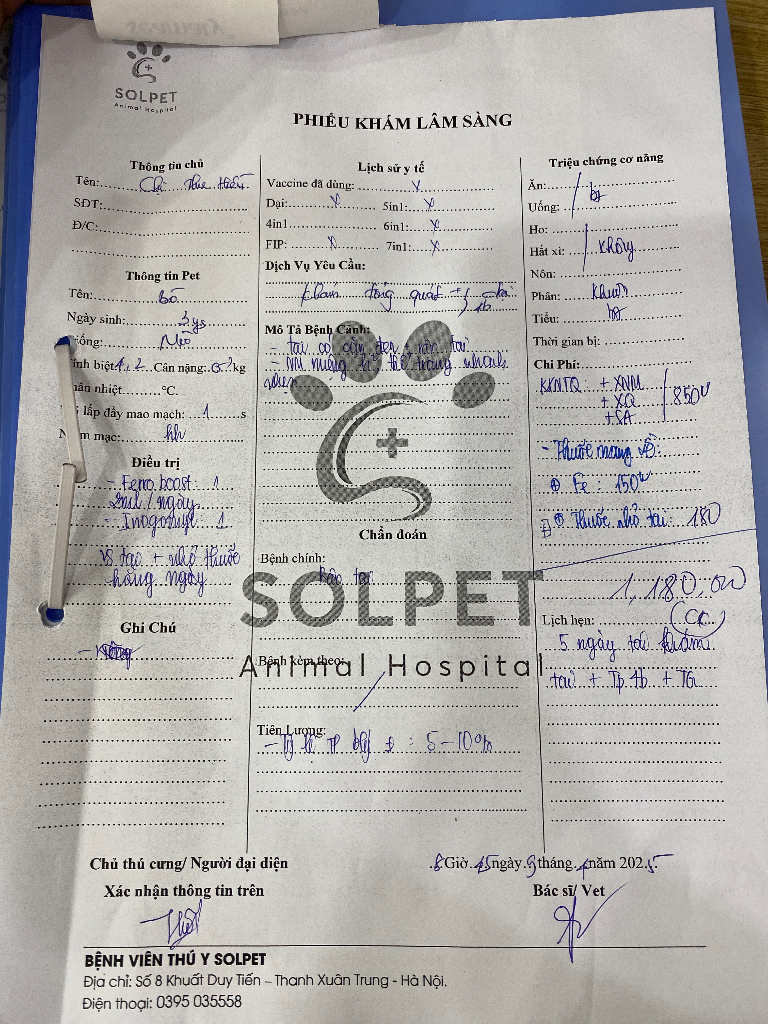 SOLPET
Animal Hospital
PHIẾU KHÁM LÂM SÀNG
Thông tin chủ
Tên: Chị
SĐT:
Đ/C:
Thông tin Pet
Tên: Bô
Ngày sinh: 3ys
Giống: Mèo
Cân nặng: kg
°C.
lấp đầy mao mạch: 1 s
mạc: hh
Điều trị
- Ferro boost: 1
2ml/ngày
- Inogomyl: 1
VS tai + nhỏ thuốc
hàng ngày
Ghi Chú
Lịch sử y tế
Vaccine đã dùng: x
Dại: x 5in1: x
4in1 6in1: x
FIP: x 7in1: x
Dịch Vụ Yêu Cầu:
khám tổng quát +
Mô Tả Bệnh Cảnh:
- tai có cặn đen + rận tai
- NM miệng thể trạng nhanh
nhẹn
Chẩn đoán
Bệnh chính:
tai
Bệnh kèm theo:
Tiên Lượng:
- Tỷ lệ TP : 5-10%
SOLPET
Animal Hospital
Triệu chứng cơ năng
Ăn:
Uống: bt
Ho:
Hắt xì: không
Nôn:
Phân: khuôn
Tiểu: bt
Thời gian bị:
Chi Phí:
KKNTQ + XNM
+ XQ 850
+ SA
- Thuốc mang về:
⊕ Fe: 150
⊕ Thuốc nhỏ tai: 180
1,180,000
CK
Lịch hẹn:
5 ngày tái khám
tai + Tp tb + TG
Chủ thú cưng/ Người đại diện
Xác nhận thông tin trên
8 Giờ 45 ngày 9 tháng 4 năm 2025
Bác sĩ/ Vet
BỆNH VIỆN THÚ Y SOLPET
Địa chỉ: Số 8 Khuất Duy Tiến – Thanh Xuân Trung - Hà Nội.
Điện thoại: 0395 035558